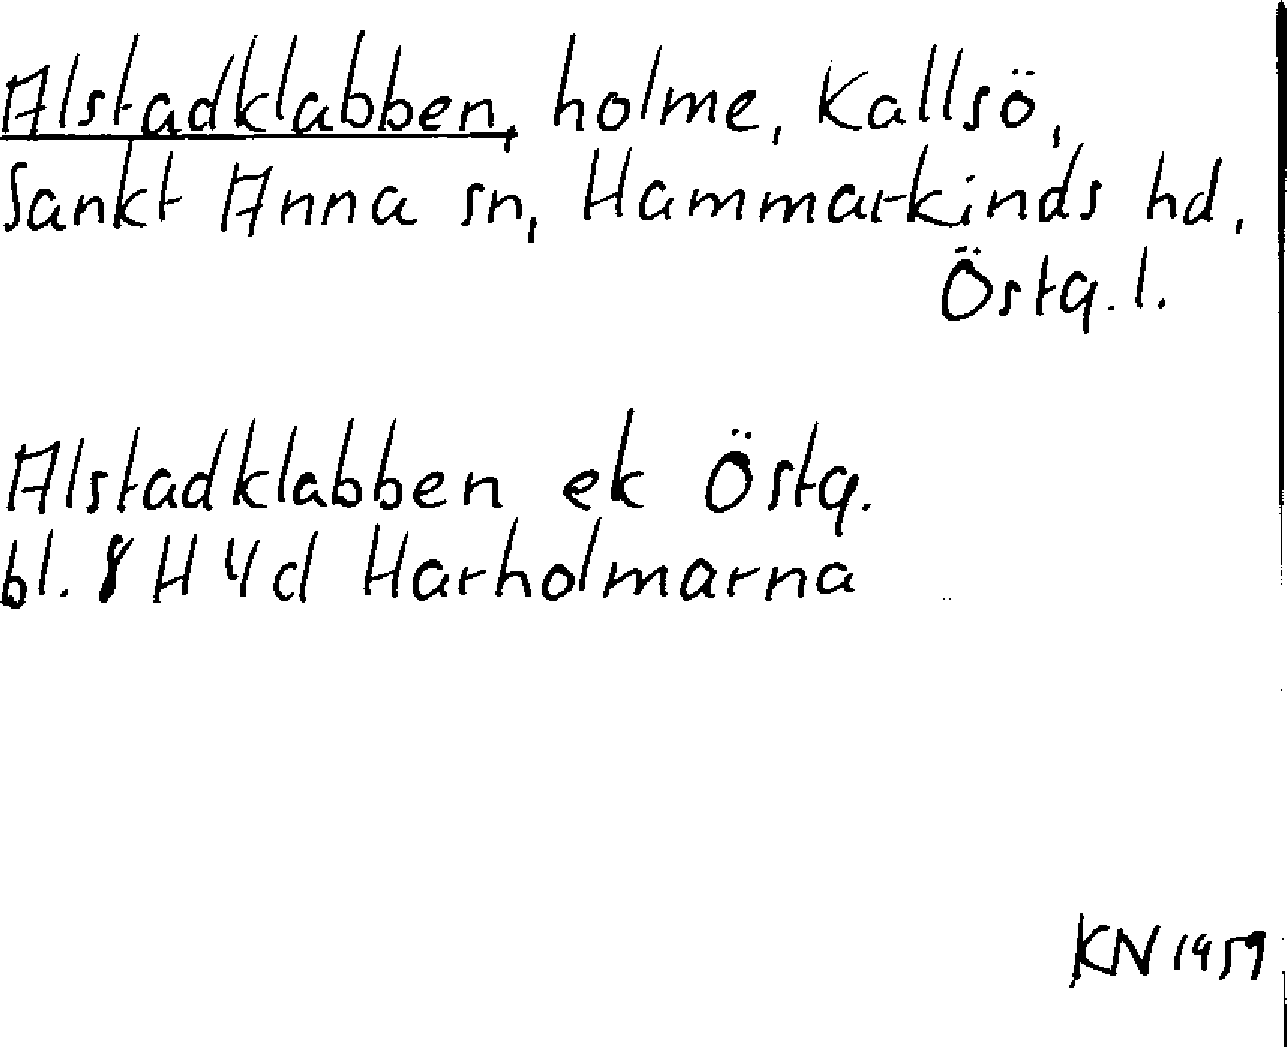 Alstadklabben, holme, Kallsö,
Sankt Anna sn, Hammarkinds hd,
Östg. l.
Alstadklabben ek Östg.
bl. 8 H 4 d Harholmarna
KN 1959